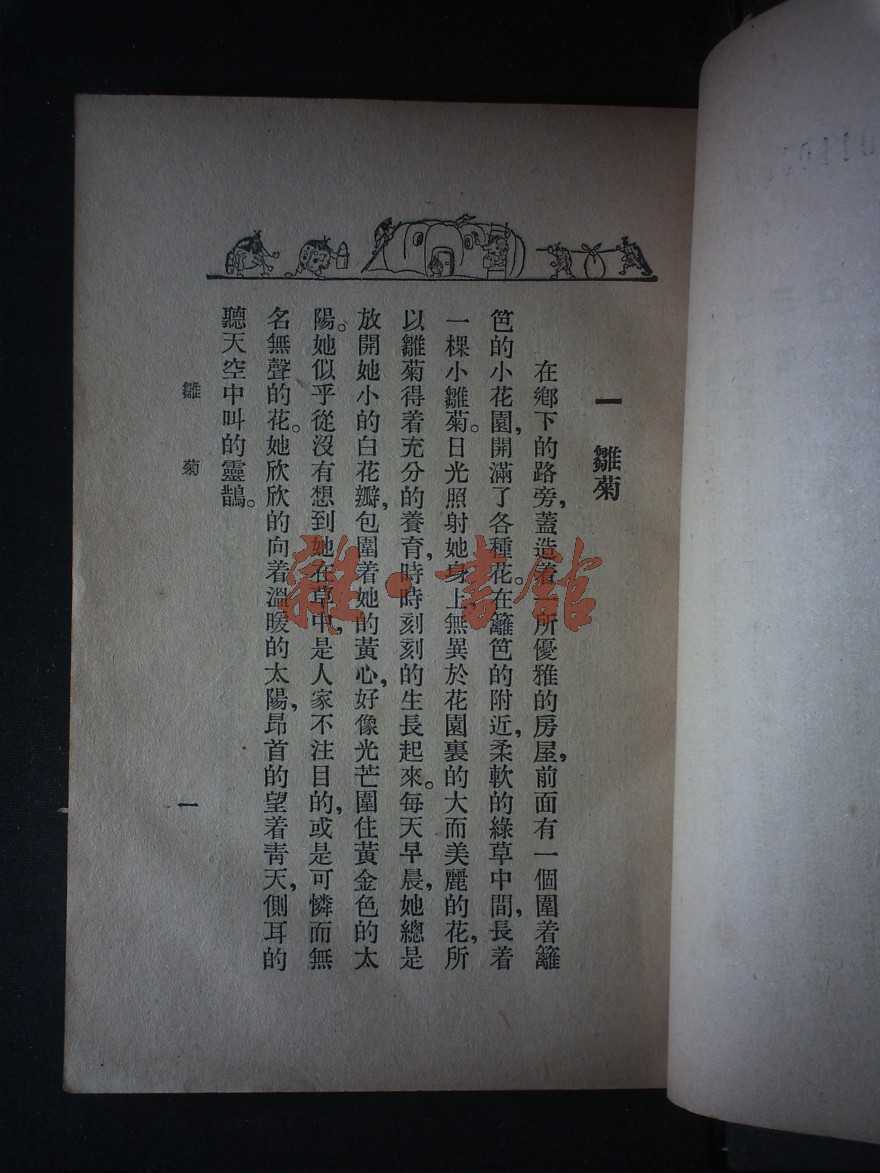 一 雛菊
在鄉下的路旁，蓋造着一所優雅的房屋，前面有一個圍着籬
笆的小花園，開滿了各種花。在籬笆的附近，柔軟的綠草中間，長着
一棵小雛菊。日光照射她身上，無異於花園裏的大而美麗的花，所
以雛菊得着充分的養育，時時刻刻的生長起來。每天早晨，她總是
放開她小的白花瓣，包圍着她的黃心，好像光芒圍住黃金色的太
陽。她似乎從沒有想到她在草中，是人家不注目的，或是可憐而無
名無聲的花。她欣欣的向着溫暖的太陽，昂首的望着靑天，側耳的
聽天空中叫的靈鵲。
雛菊
一
雜·書館